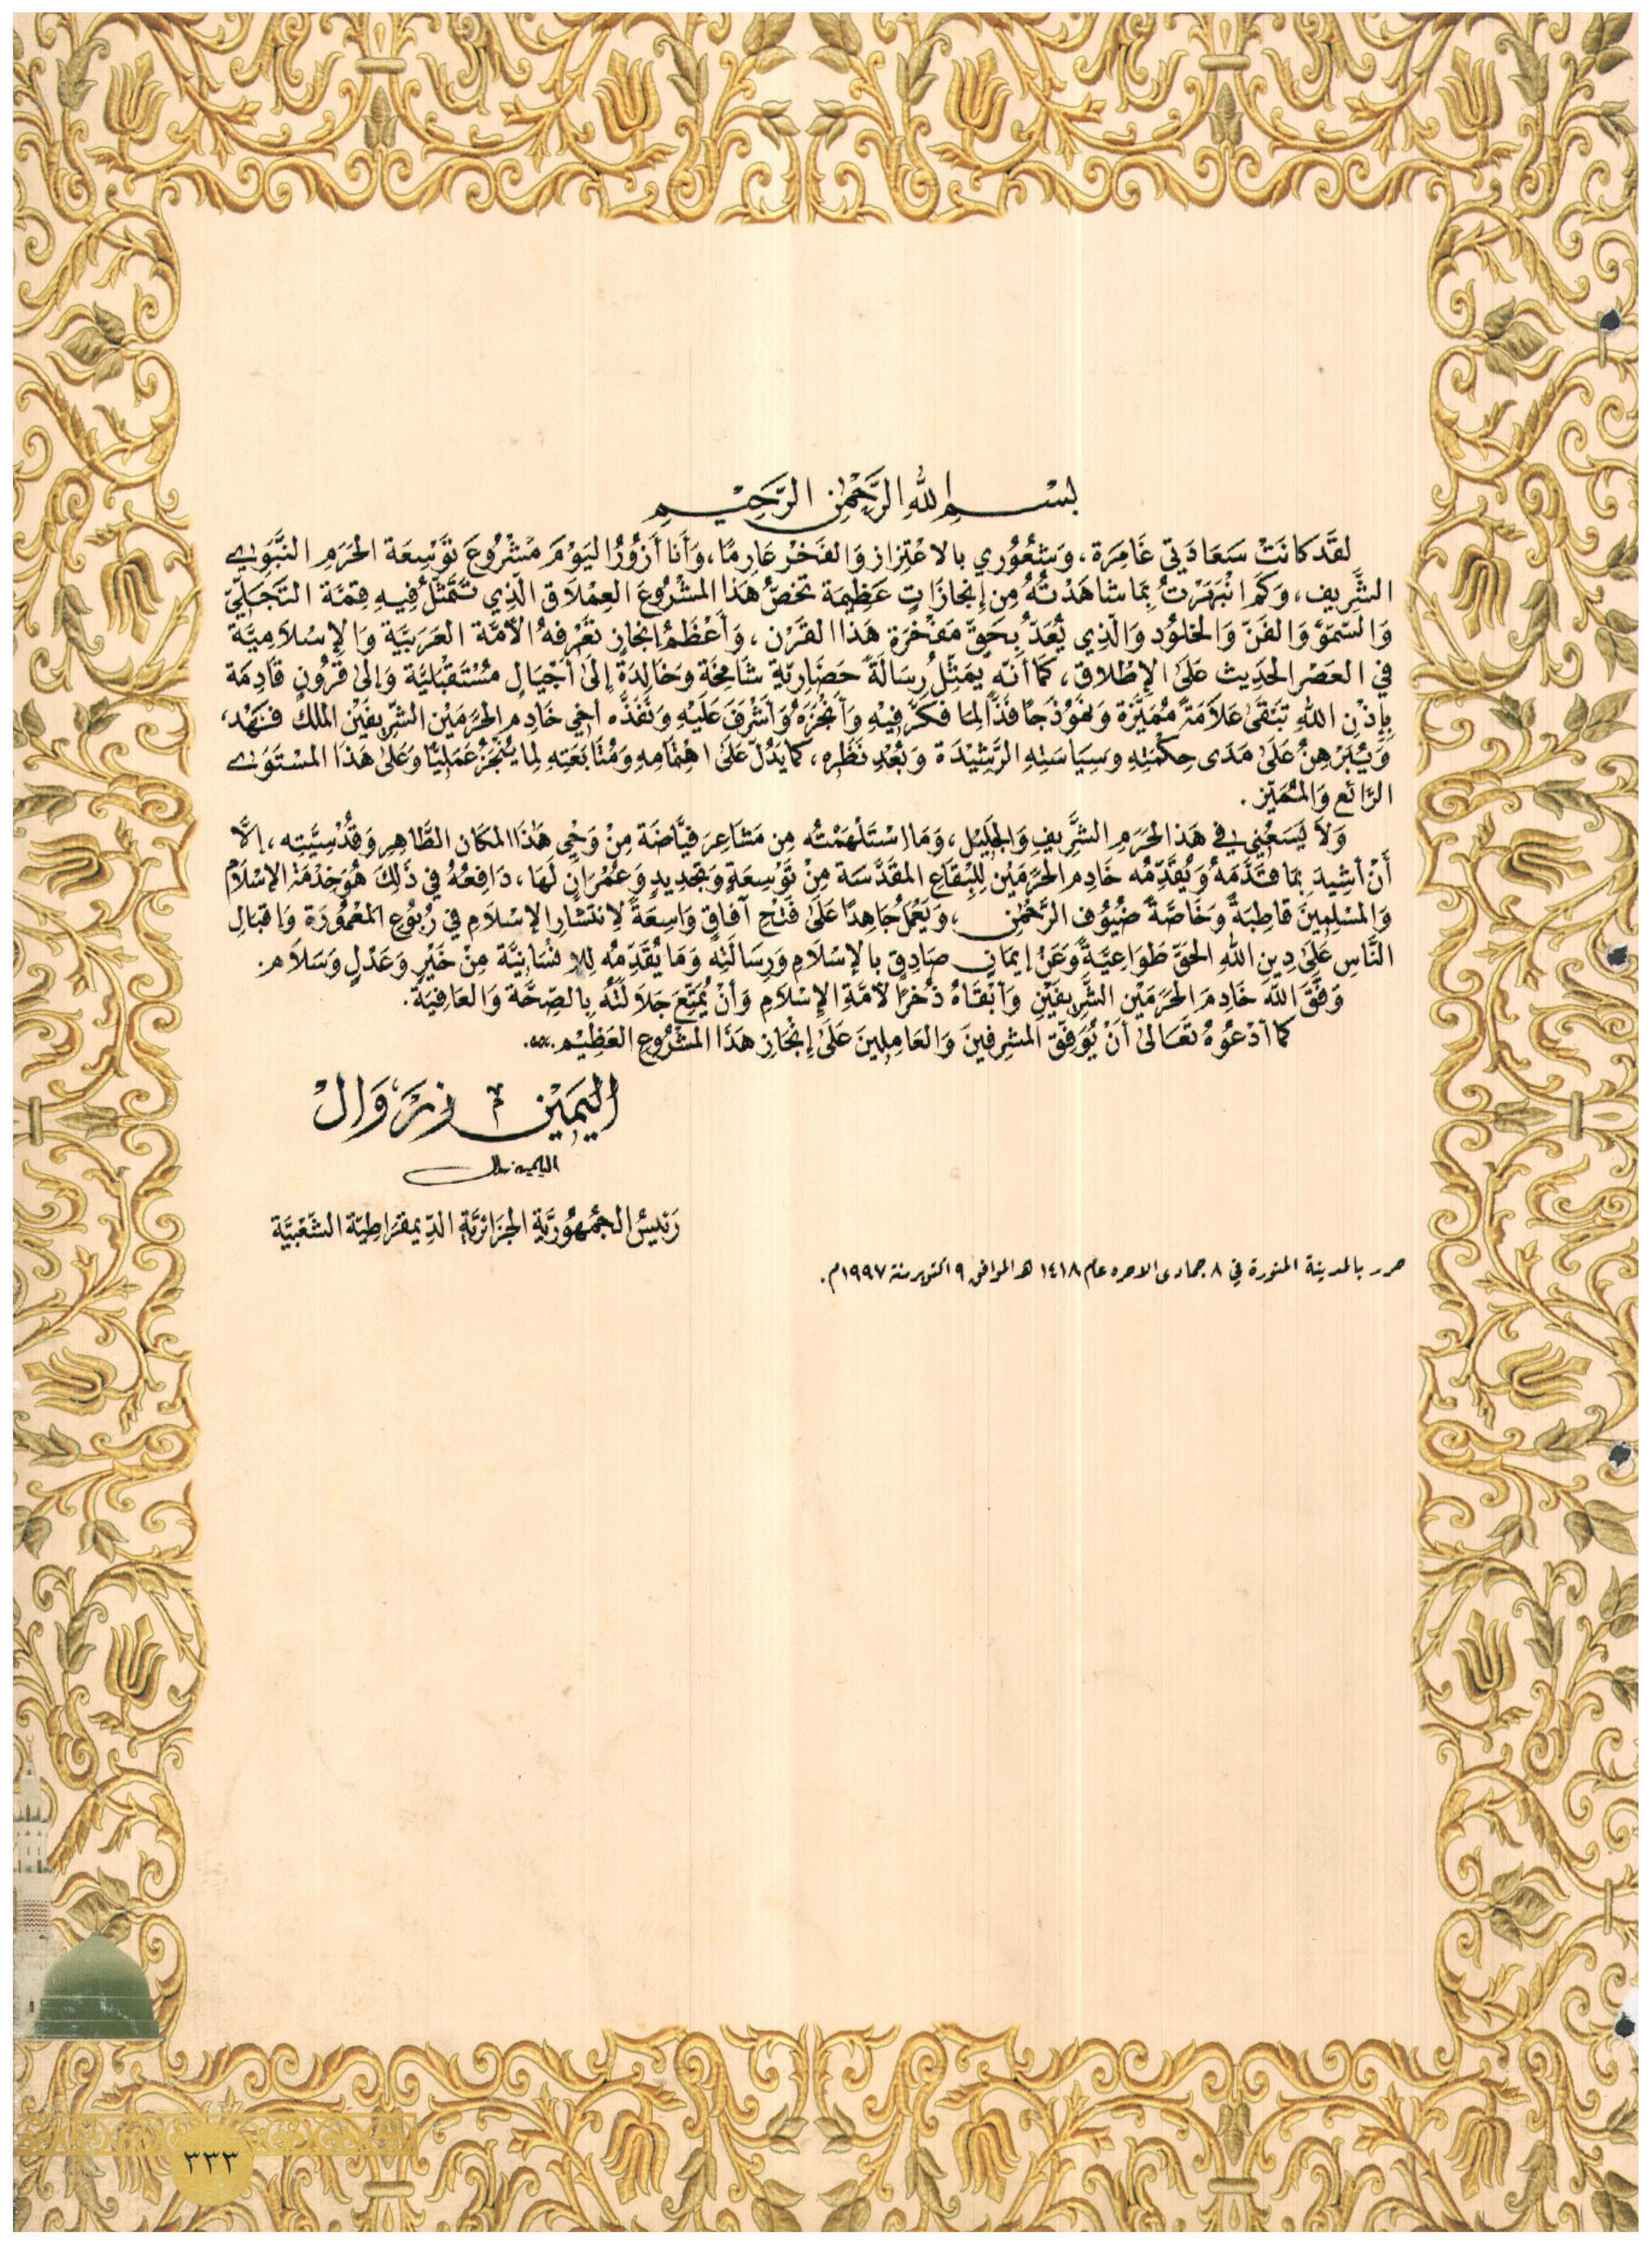 بِسْمِ اللهِ الرَّحْمٰنِ الرَّحِيْمِ
لقَد كانَتْ سَعَادَتي غَامِرَة، وَشُعُوري بالاعْتِزاز وَالفَخْر عَارِمًا، وَأَنا أَزُورُ اليَوْمَ مَشْرُوعَ تَوْسِعَة الحَرَمِ النَّبَوي
الشَّرِيف، وَكَم انْبَهَرْتُ بِمَا شاهَدْتُهُ مِن إِنجازَاتٍ عَظِيمَة تخصُّ هَذا المشْرُوعَ العِمْلَاق الّذِي تَتَمَثّلُ فِيهِ قِمَّة التَجَلِّي
وَالسّمَوّ وَالفَنّ وَالخلُود وَالّذِي يُعَدّ بِحَقّ مَفْخَرَة هَذا القَرْن، وَأَعْظَمُ إنجازٍ تَعْرِفهُ الأمَّة العَرَبيَّة وَالإِسْلاَمِيَّة
في العَصْر الحَدِيث عَلَى الإِطْلاق، كَما أنّه يمَثِّلُ رِسَالَةً حَضَارِيّةٍ شامِخَة وَخَالِدَة إلَى أَجْيَالٍ مُسْتَقْبَليَّة وَإلىٰ قُرُونٍ قَادِمَة
بِإِذْنِ اللهِ تَبْقَىٰ عَلاَمَةً مُمَيَّزة وَنمُوذَجًا فَذًّا لمِا فَكَّرَ فِيْهِ وَأَنْجَزَهُ وَأَشْرَفَ عَلَيْهِ وَنَفَّذَه أخِي خَادِم الحَرَمَيْن الشَّرِيفَيْن الملك فَهْد،
وَيُبَرْهِنُ عَلَى مَدَى حِكْمَتِهِ وسِيَاسَتِهِ الرَّشِيْدَة وَبُعْدِ نَظَرِه، كَما يَدُلّ عَلَى اهْتمَامِهِ وَمُتَابَعَتِهِ لِما يُنْجَزُ عَمَلِيًّا وَعَلىٰ هَذَا المسْتَوَى
الرَّائِع وَالمُتَمَيّز.
وَلاَ يَسَعُنِي في هَذا الحَرَمِ الشَّرِيفِ وَالجَلِيْل، وَمَا اسْتَلْهَمْتُه مِن مَشاعِرَ فيَّاضَة مِنْ وَحْيِ هَذا المكَان الطَّاهِر وَقُدْسِيَّتِه، إلَّا
أَنْ أُشِيدَ بمَا قَدَّمَهُ وَيُقَدِّمُه خَادِم الحَرَمَيْن لِلْبِقَاعِ المقَدَّسَة مِنْ تَوْسِعَةٍ وَتجْدِيدٍ وَعُمْرَانٍ لَهَا، دَافِعُهُ في ذَلِكَ هُوَ خِدْمَة الإسْلاَم
وَالمسْلِمِينَ قاطِبَةً وَخَاصَّةً ضيُوف الرَّحْمٰن، وَيَعْمَلُ جَاهِدًا عَلَى فَتْحِ آفَاقٍ وَاسِعَة لاِنتشَارِ الإسْلَام في رُبُوعِ المَعْمُورَة وَإقبَالِ
النَّاسِ عَلَىٰ دِينِ اللهِ الحَقّ طَوَاعِيَّةً وَعَنْ إيمَانٍ صَادِقٍ بالإسْلَامِ وَرِسَالَتِهِ وَمَا يُقَدِّمُه لِلإنسَانيَّة مِنْ خَيْرٍ وَعَدْلٍ وَسَلَام.
وَفَّقَ اللهُ خَادِمَ الحَرَمَيْن الشَّرِيفَيْنِ وَأَبْقَاهُ ذُخْرًا لأمَّةِ الإسْلاَمِ وَأَنْ يُمَتِّعَ جَلاَلَتَهُ بِالصِّحَّة وَالعَافِيَة.
كمَا أَدْعُوهُ تَعَالىٰ أَنْ يُوَفِّقَ المشْرِفينَ وَالعَامِلِينَ عَلَىٰ إنْجَازِ هَذَا المَشْرُوعِ العَظِيْم.
اليَمِيْن زَرْوَال
رَئيسُ الجُمْهُورِيَّةِ الجَزَائِريَّةِ الدِّيمقرَاطِيّة الشّعْبيَّة
حرر بالمدينة المنورة في ٨ جمادى الآخرة عام ١٤١٨ هـ الموافق ٩ أكتوبر سنة ١٩٩٧م.
٣٣٣